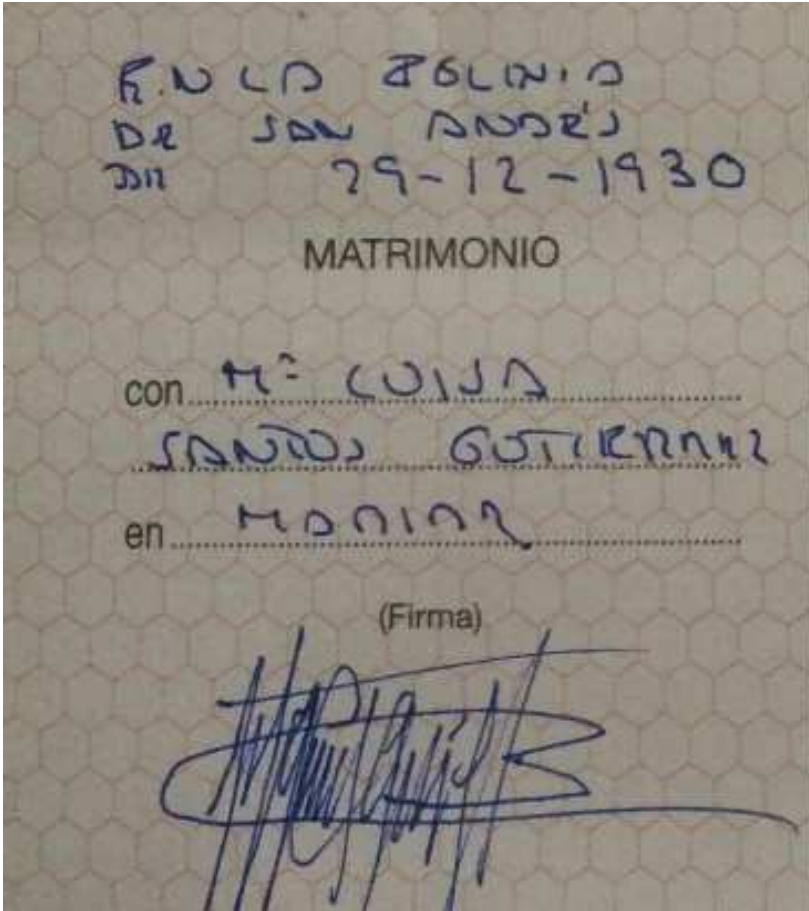 EN LA
DE SAN ANDRÉS
29-12-1930
MATRIMONIO
con Mª LUISA
SANTOS GUTIERREZ
en
(Firma)